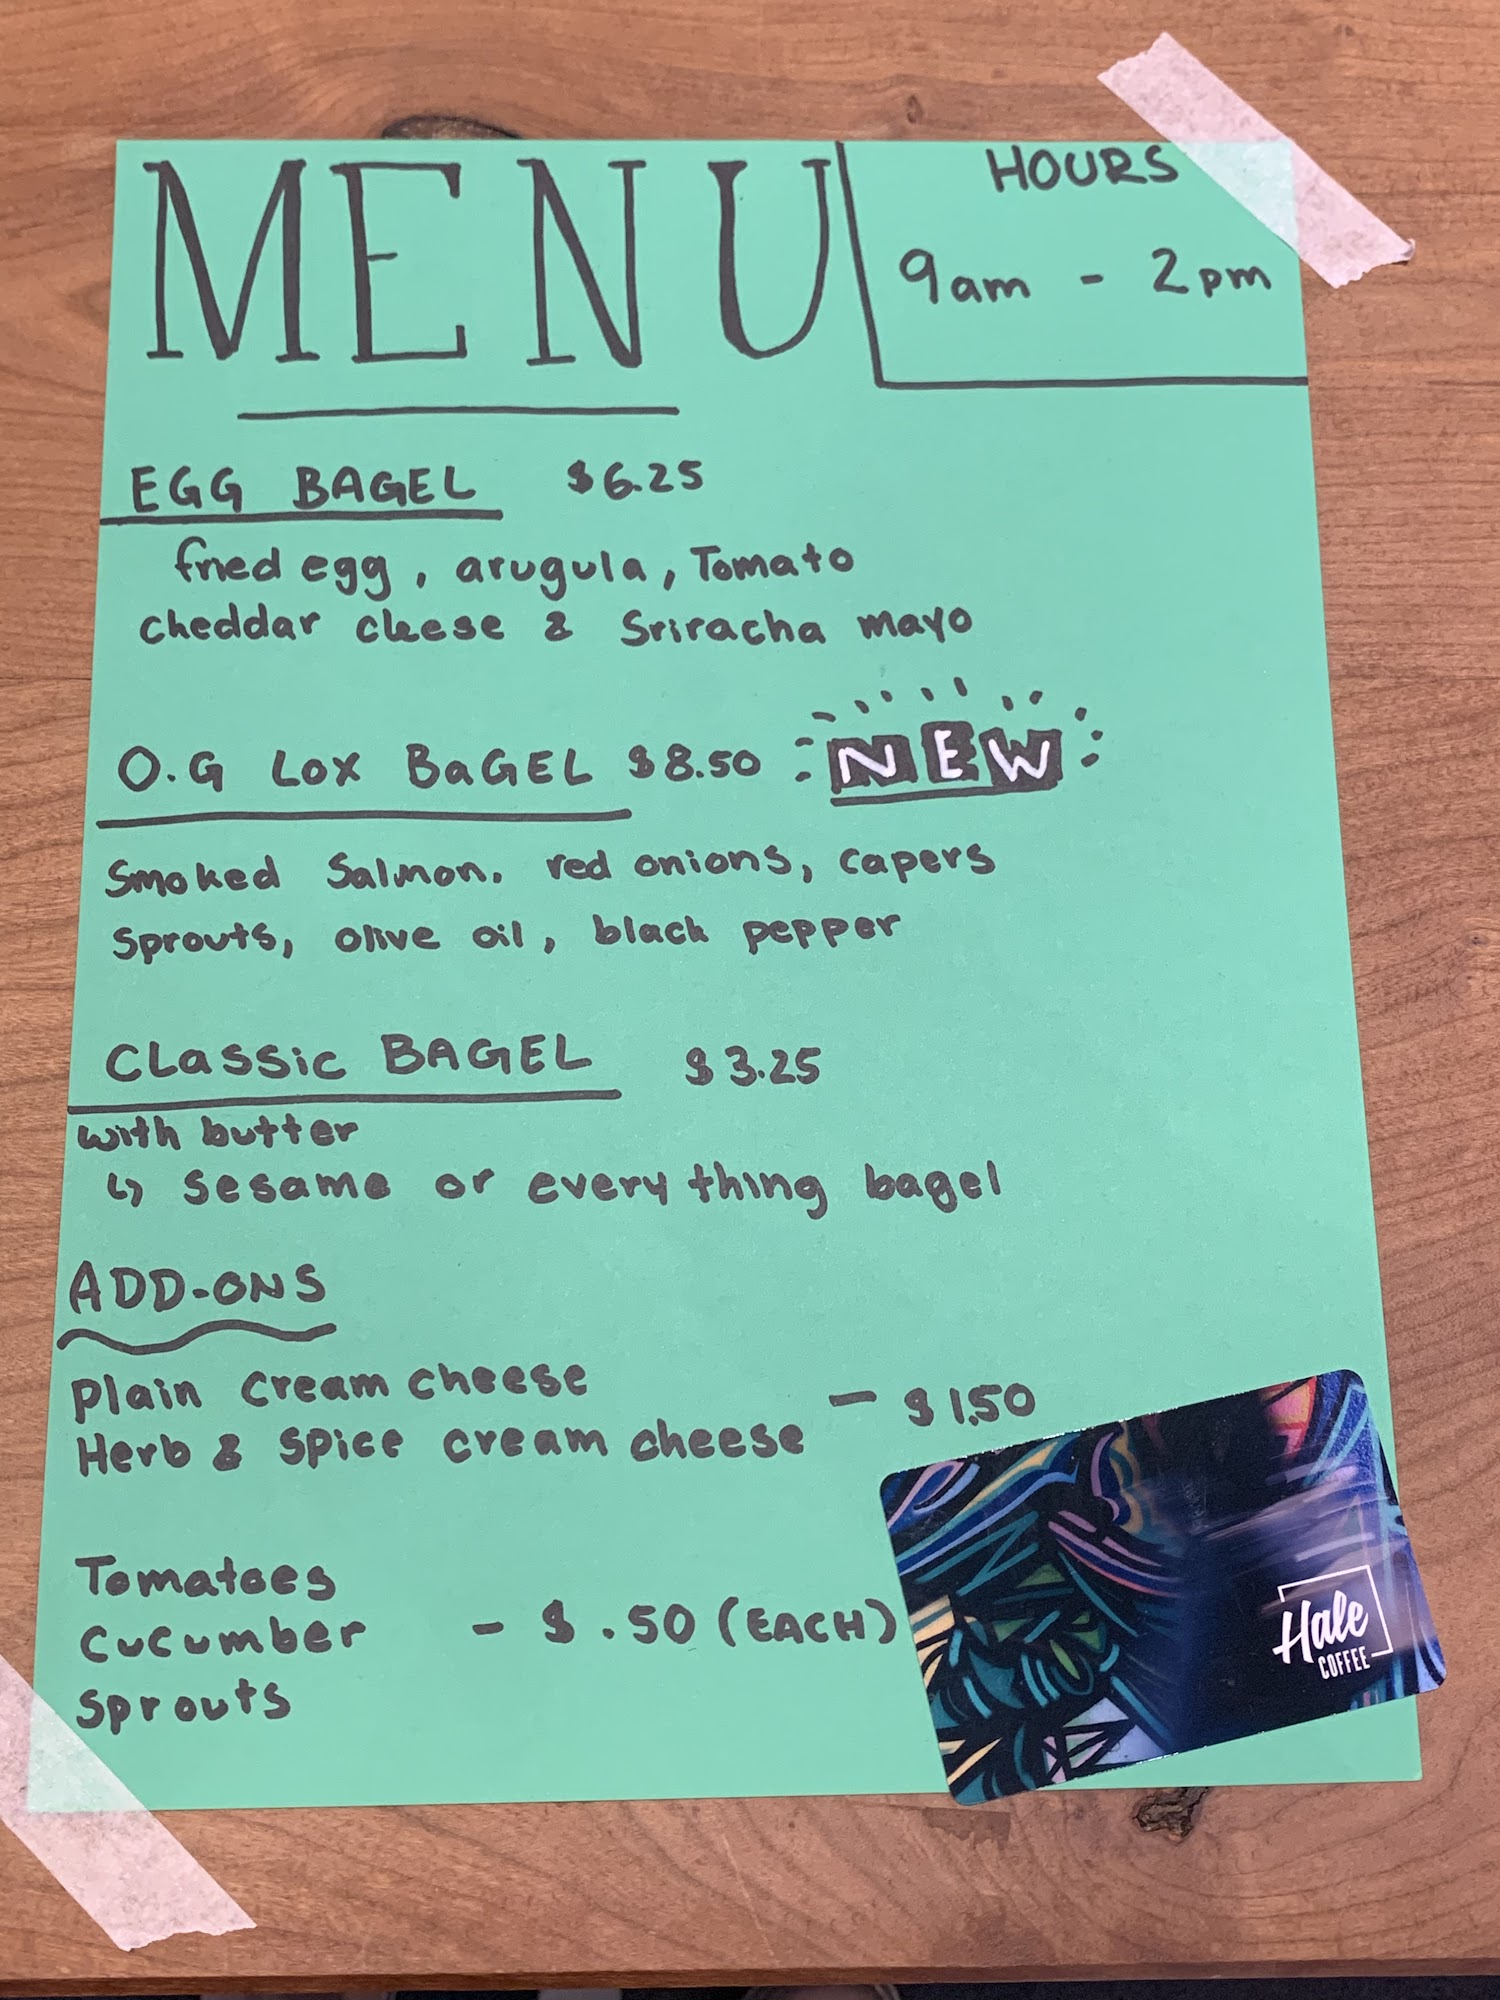 MENU
HOURS
9am - 2pm
EGG BAGEL $6.25
fried egg, arugula, Tomato
cheddar cheese & Sriracha mayo
O.G LOX BaGEL $8.50 NEW
Smoked Salmon, red onions, capers
Sprouts, olive oil, black pepper
CLassic BAGEL $3.25
with butter
↳ sesame or everything bagel
ADD-ONS
Plain cream cheese - $1.50
Herb & spice cream cheese
Tomatoes
Cucumber - $.50 (EACH)
Sprouts
Hale
COFFEE